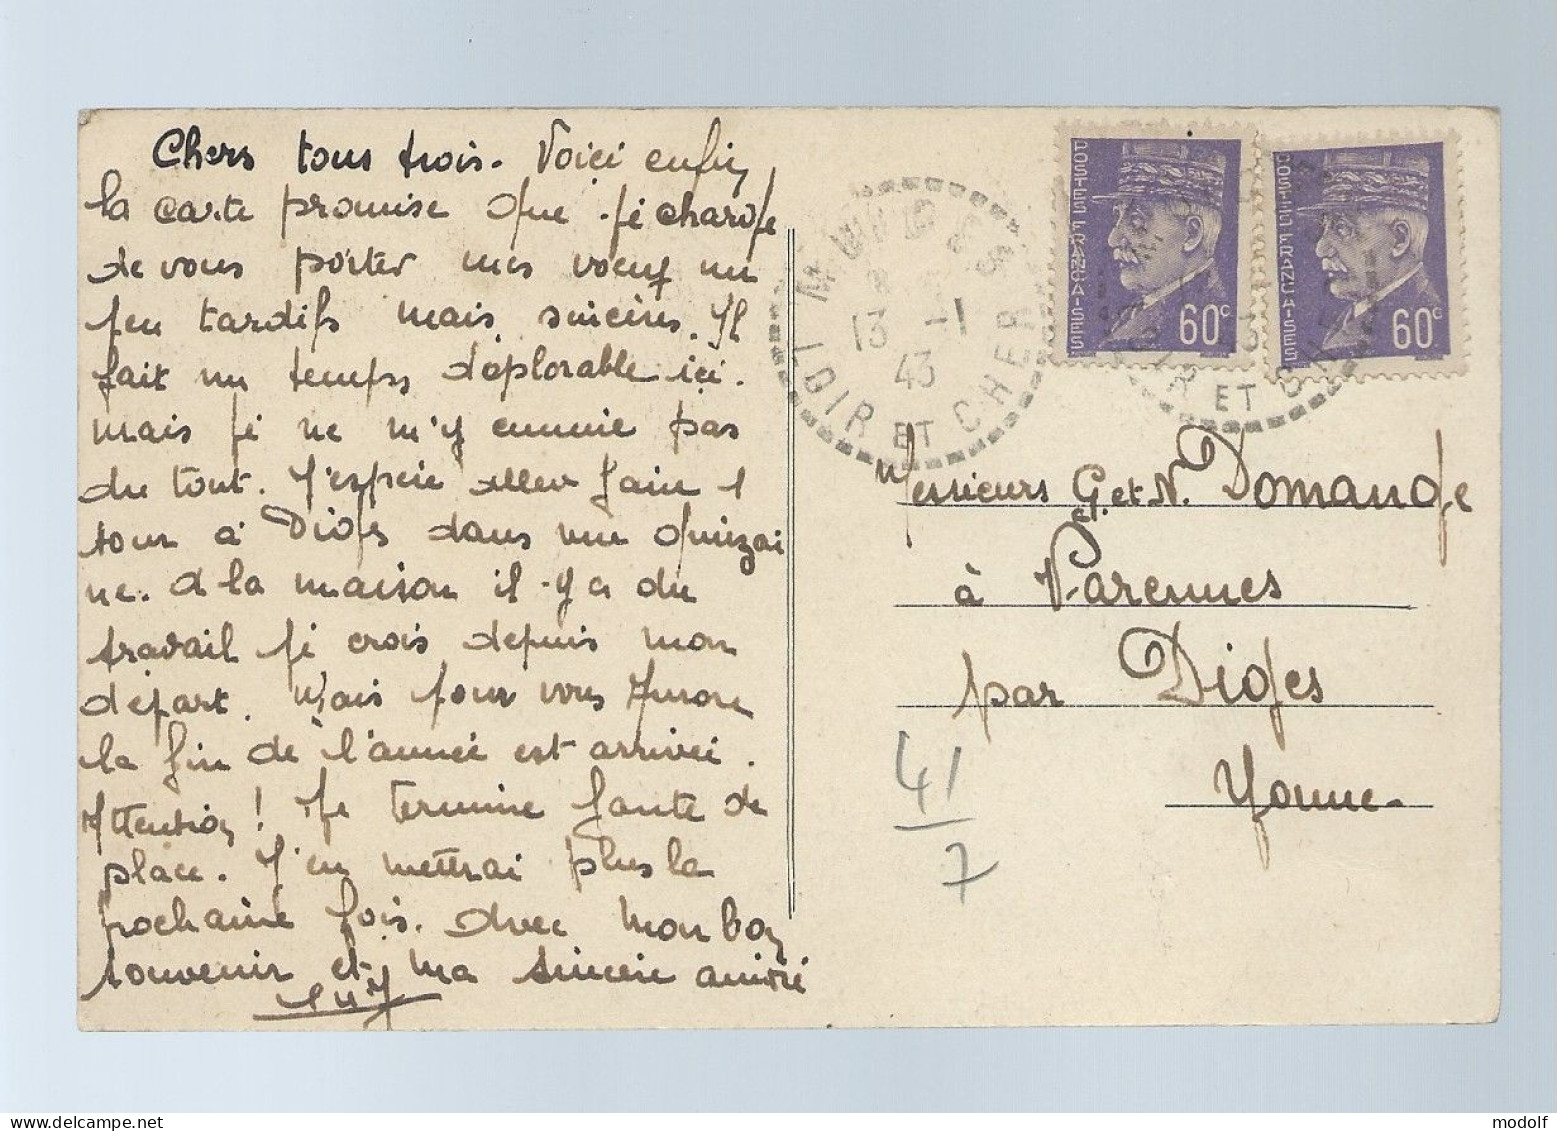 Chers tous trois. Voici enfin
la carte promise que je charge
de vous porter mes voeux un
peu tardifs mais sincères. Il
fait un temps déplorable ici.
mais je ne m'y ennuie pas
du tout. J'espère aller faire 1
tour à Diges dans une quinzai
ne. A la maison il y a du
travail je crois depuis mon
départ. Mais pour vous
la fin de l'année est arrivée.
Attention ! Je termine faute de
place. J'en mettrai plus la
prochaine fois. Avec mon bon
souvenir et ma sincère amitié
MUIDES
13 -1
43
LOIR ET CHER
POSTES FRANÇAISES
60c
POSTES FRANÇAISES
60c
ET
Messieurs G. et N. Domange
à Varennes
par Diges
Yonne.
41
7
modolf